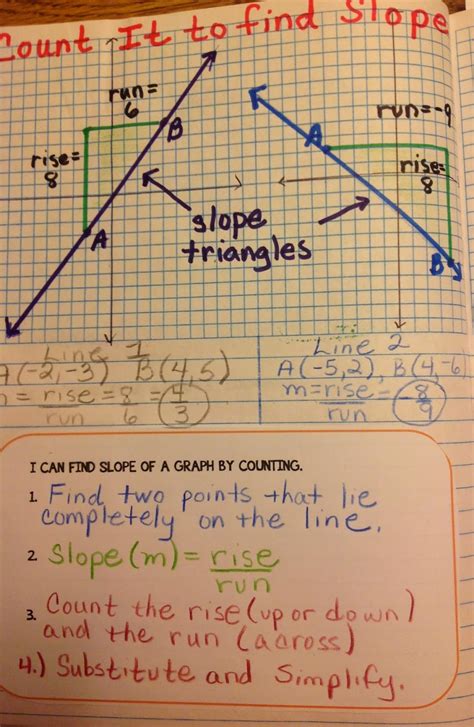 Count It to find Slope
run=
6
B
rise=
8
A
run=-9
A
rise=
8
B
slope
triangles
Line 1
A(-2,-3) B(4,5)
m = rise = 8 = 4
run 6 3
Line 2
A(-5,2), B(4,-6)
m=rise = -8
run 9
I CAN FIND SLOPE OF A GRAPH BY COUNTING.
1. Find two points that lie
completely on the line.
2. Slope (m) = rise
run
3. Count the rise (up or down)
and the run (across)
4.) Substitute and Simplify.